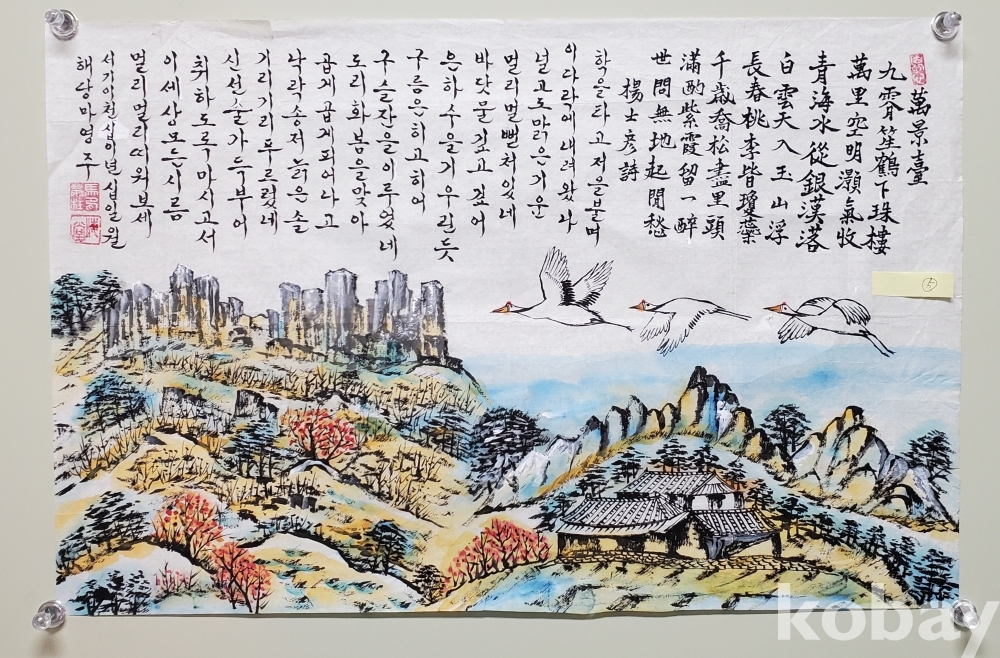 萬景臺
九霄笙鶴下珠樓
萬里空明灝氣收
青海水從銀漢落
白雲天入玉山浮
長春桃李皆瓊蘂
千歲喬松盡黑頭
滿酌紫霞留一醉
世間無地起閒愁
楊士彦詩
학을타고저을불며
이다락에내려왔나
넓고도맑은기운
멀리멀리뻗처있네
바닷물깊고깊어
은하수을기우린듯
구름은히고히어
구슬잔을이루었네
도리화봄을맞아
곱게곱게피어나고
낙락송저늙은솔
기리기리푸르렀네
신선술가득부어
취하도록마시고서
이세상모든시름
멀리멀리띠워보세
서기이천십이년십일월
해당마영주
⑤
kobay